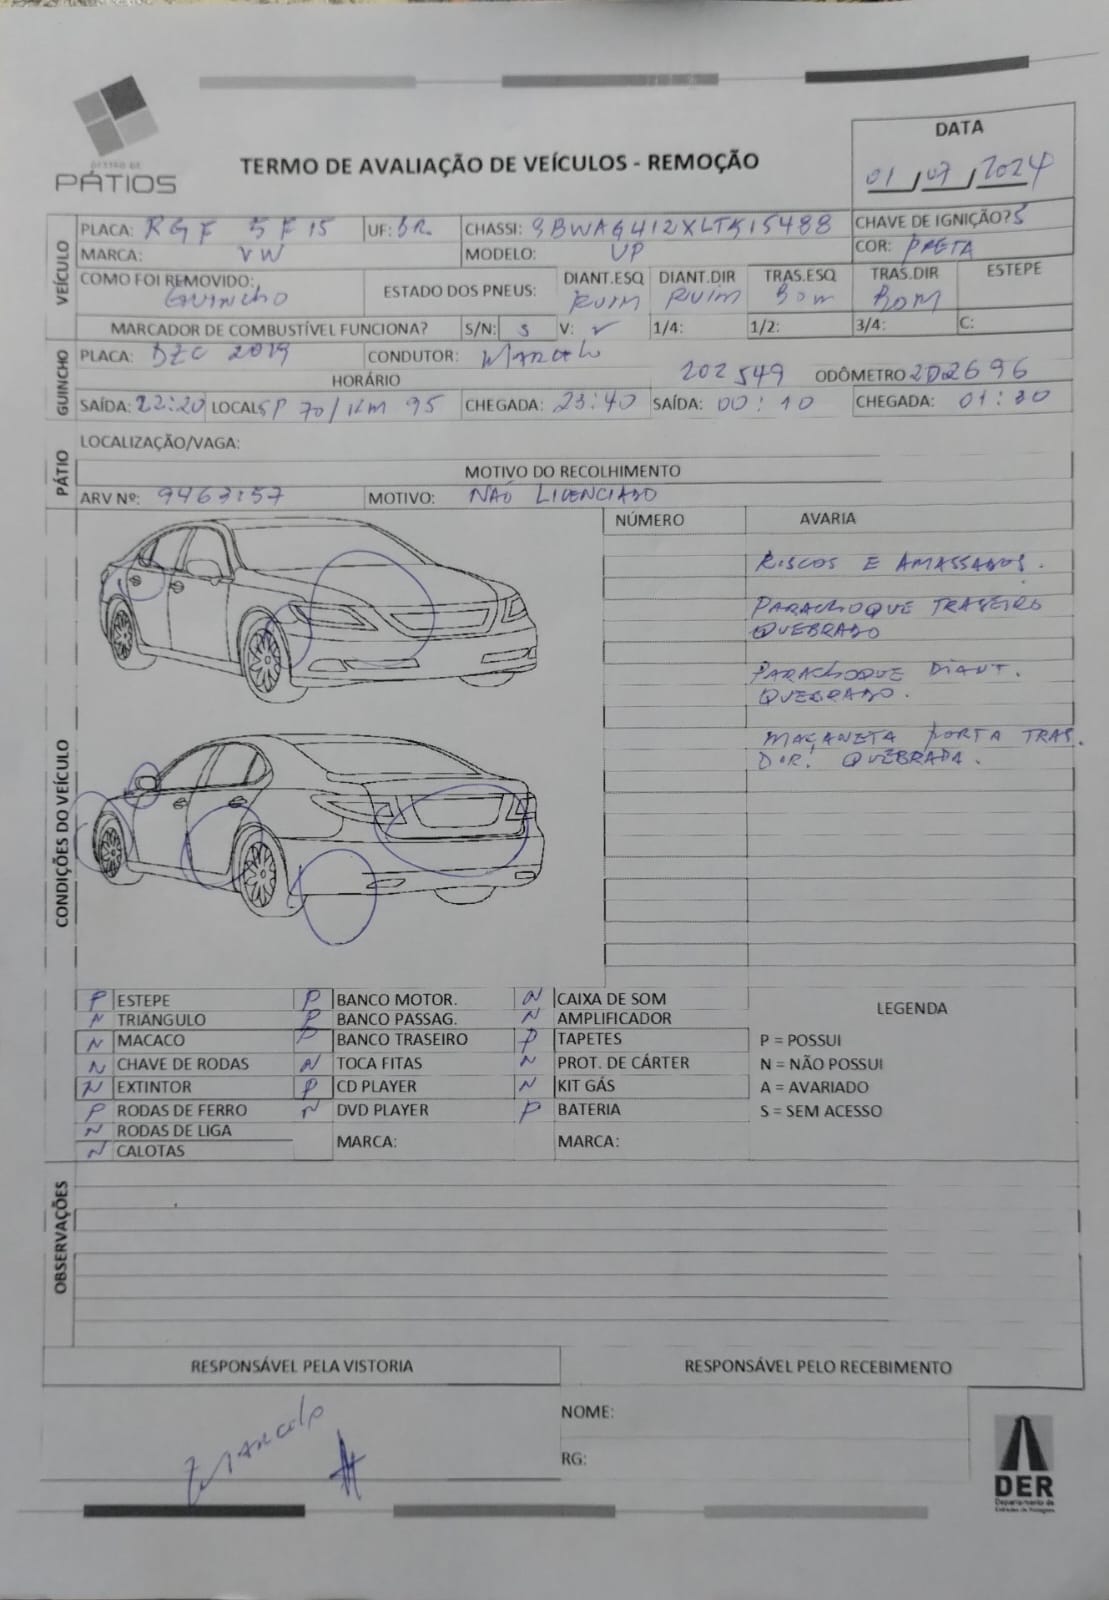 GESTÃO DE
PÁTIOS
TERMO DE AVALIAÇÃO DE VEÍCULOS - REMOÇÃO
DATA
01/07/2024
VEÍCULO
PLACA: RGF 5F15 UF: BR. CHASSI: 9BWAG412XLT515488 CHAVE DE IGNIÇÃO? S
MARCA: VW MODELO: UP COR: PRETA
COMO FOI REMOVIDO: GUINCHO ESTADO DOS PNEUS: DIANT.ESQ RUIM DIANT.DIR RUIM TRAS.ESQ BOM TRAS.DIR BOM ESTEPE
MARCADOR DE COMBUSTÍVEL FUNCIONA? S/N: S V: ✓ 1/4: 1/2: 3/4: C:
GUINCHO
PLACA: DZC 2019 CONDUTOR: Marcelo
HORÁRIO 202549 ODÔMETRO 202696
SAÍDA: 22:20 LOCAL SP 70/KM 95 CHEGADA: 23:40 SAÍDA: 00:10 CHEGADA: 01:30
PÁTIO
LOCALIZAÇÃO/VAGA:
MOTIVO DO RECOLHIMENTO
ARV Nº: 9463157 MOTIVO: NÃO LICENCIADO
CONDIÇÕES DO VEÍCULO
NÚMERO AVARIA
RISCOS E AMASSADOS.
PARACHOQUE TRASEIRO
QUEBRADO
PARACHOQUE DIANT.
QUEBRADO.
MAÇANETA PORTA TRAS.
DIR. QUEBRADA.
P ESTEPE P BANCO MOTOR. N CAIXA DE SOM LEGENDA
N TRIÂNGULO P BANCO PASSAG. N AMPLIFICADOR
N MACACO P BANCO TRASEIRO P TAPETES P = POSSUI
N CHAVE DE RODAS N TOCA FITAS N PROT. DE CÁRTER N = NÃO POSSUI
N EXTINTOR P CD PLAYER N KIT GÁS A = AVARIADO
P RODAS DE FERRO N DVD PLAYER P BATERIA S = SEM ACESSO
N RODAS DE LIGA
MARCA: MARCA:
N CALOTAS
OBSERVAÇÕES
RESPONSÁVEL PELA VISTORIA RESPONSÁVEL PELO RECEBIMENTO
Marcelo
NOME:
RG:
DER
Departamento de
Estradas de Rodagem